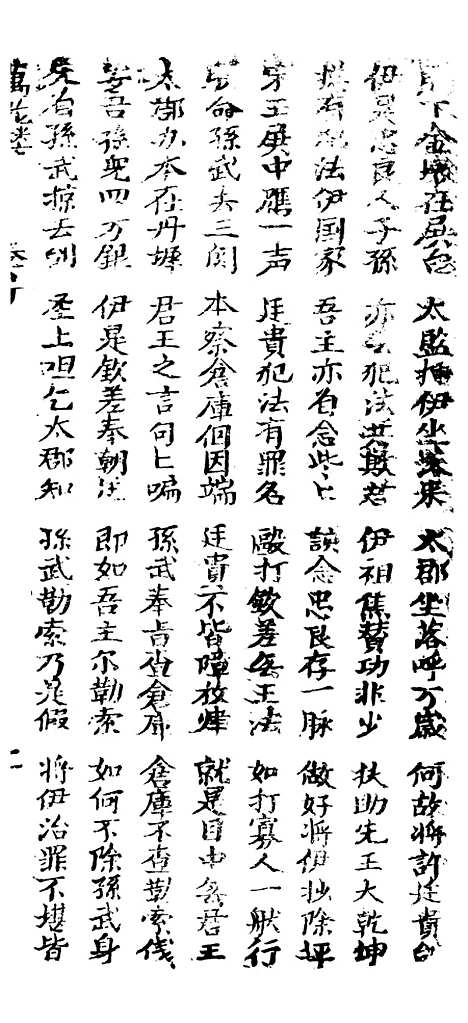 下金墩在殿台 太監掉伊坐落来 太郡坐落呼万歲 何故將許廷貴台
伊是忠良人子孫 亦犯法共君 伊祖焦賛功非少 扶助先王大乾坤
有犯法伊国家 吾主亦着念些匕 該念忠良存一脉 做好將伊抄除坪
宋王殿中應一声 廷貴犯法有罪名 毆打欽差無王法 如打寡人一般行
命孫武去三関 本察倉庫個因端 廷貴不皆障放肆 就是目中無君王
太郡亦本在丹墀 君王之言句匕喘 孫武奉旨查倉庫 倉庫不查勒索伐
吾孫兜四万銀 伊是欽差奉朝廷 即如吾主尔勒索 如何不除孫武身
先有孫武掠去刣 圣上呾乞太郡知 孫武勒索乃是假 將伊治罪不堪皆
萬花楼 卷 二